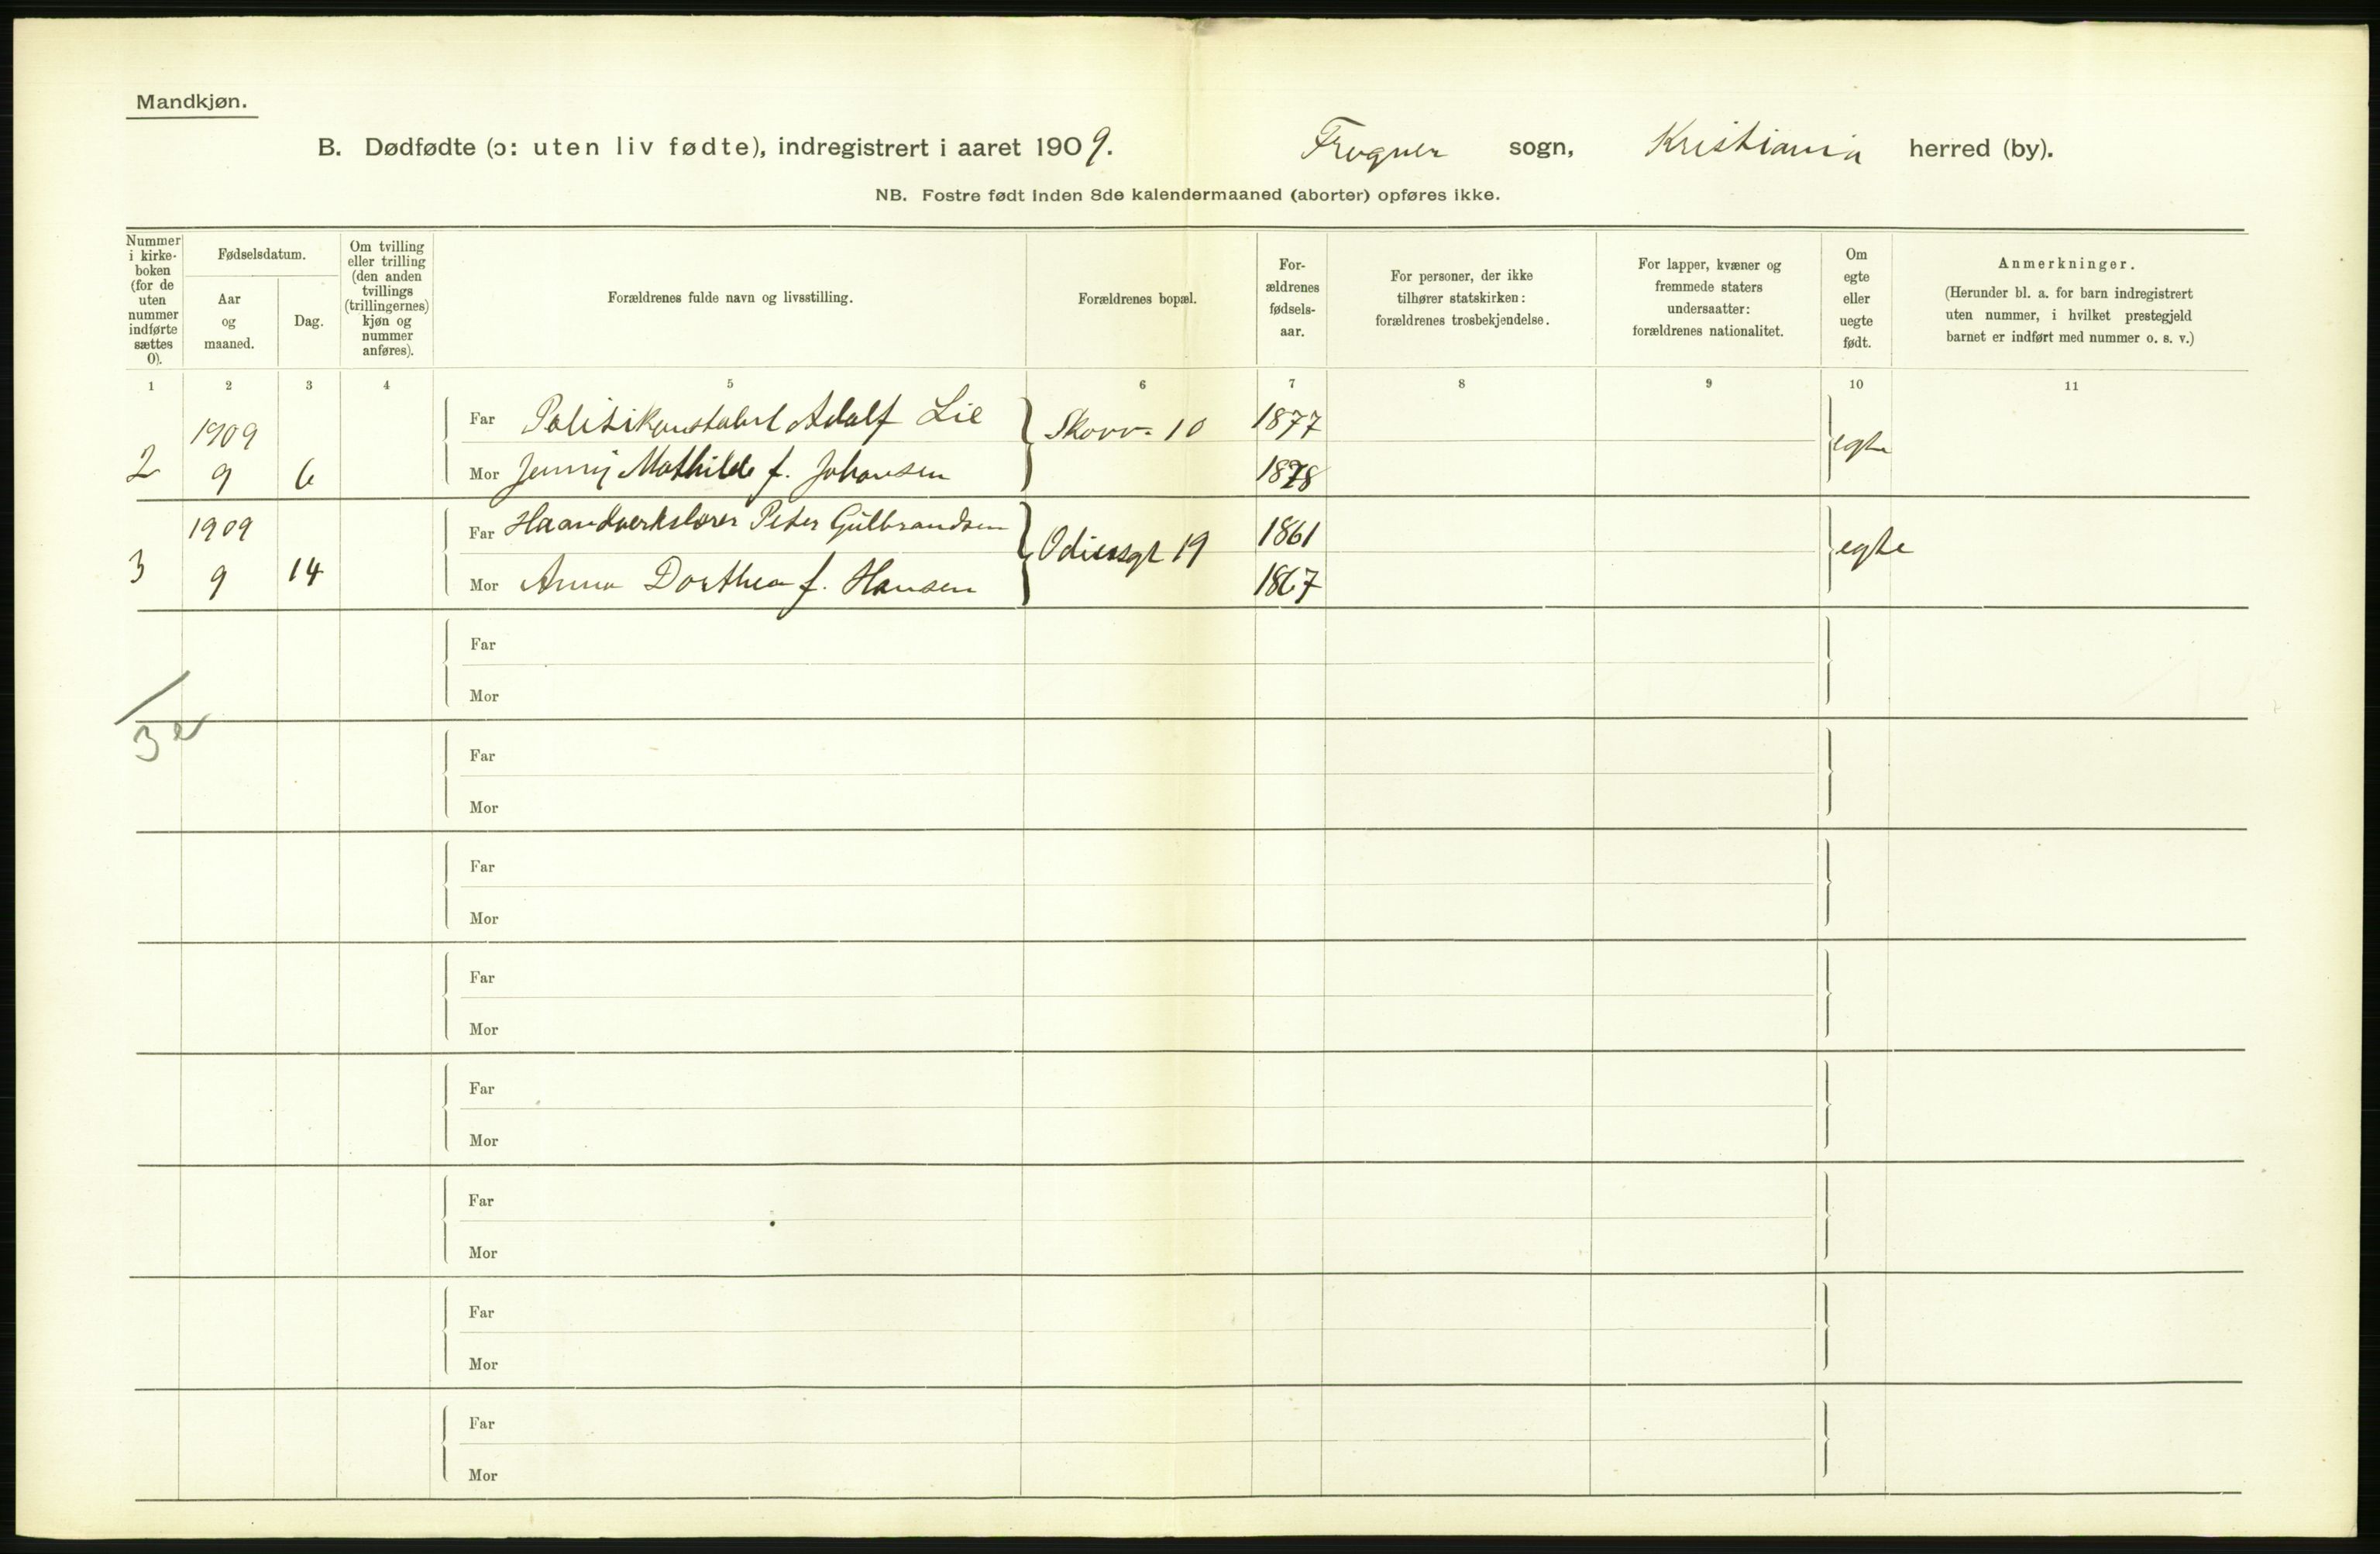 Mandkjøn.
B. Dødfødte (ɔ: uten liv fødte), indregistrert i aaret 1909. Frogner sogn, Kristiania herred (by).
NB. Fostre født inden 8de kalendermaaned (aborter) opføres ikke.
Nummer
i kirke-
boken
(for de
uten
nummer
indførte
sættes
0).
Fødselsdatum.
Aar
og
maaned.
Dag.
Om tvilling
eller trilling
(den anden
tvillings
(trillingernes)
kjøn og
nummer
anføres).
Forældrenes fulde navn og livsstilling.
Forældrenes bopæl.
For-
ældrenes
fødsels-
aar.
For personer, der ikke
tilhører statskirken:
forældrenes trosbekjendelse.
For lapper, kvæner og
fremmede staters
undersaatter:
forældrenes nationalitet.
Om
egte
eller
uegte
født.
Anmerkninger.
(Herunder bl. a. for barn indregistrert
uten nummer, i hvilket prestegjeld
barnet er indført med nummer o. s. v.)
1 2 3 4 5 6 7 8 9 10 11
1909 Far Politikonstabel Adolf Lie Skovv. 10 1877 egte
2 9 6 Mor Jenny Mathilde f. Johansen 1878
1909 Far Haandverkslærer Peter Gulbrandsen Odinsgt 19 1861 egte
3 9 14 Mor Anna Dorthea f. Hansen 1867
Far
Mor
3
Far
Mor
Far
Mor
Far
Mor
Far
Mor
Far
Mor
Far
Mor
Far
Mor